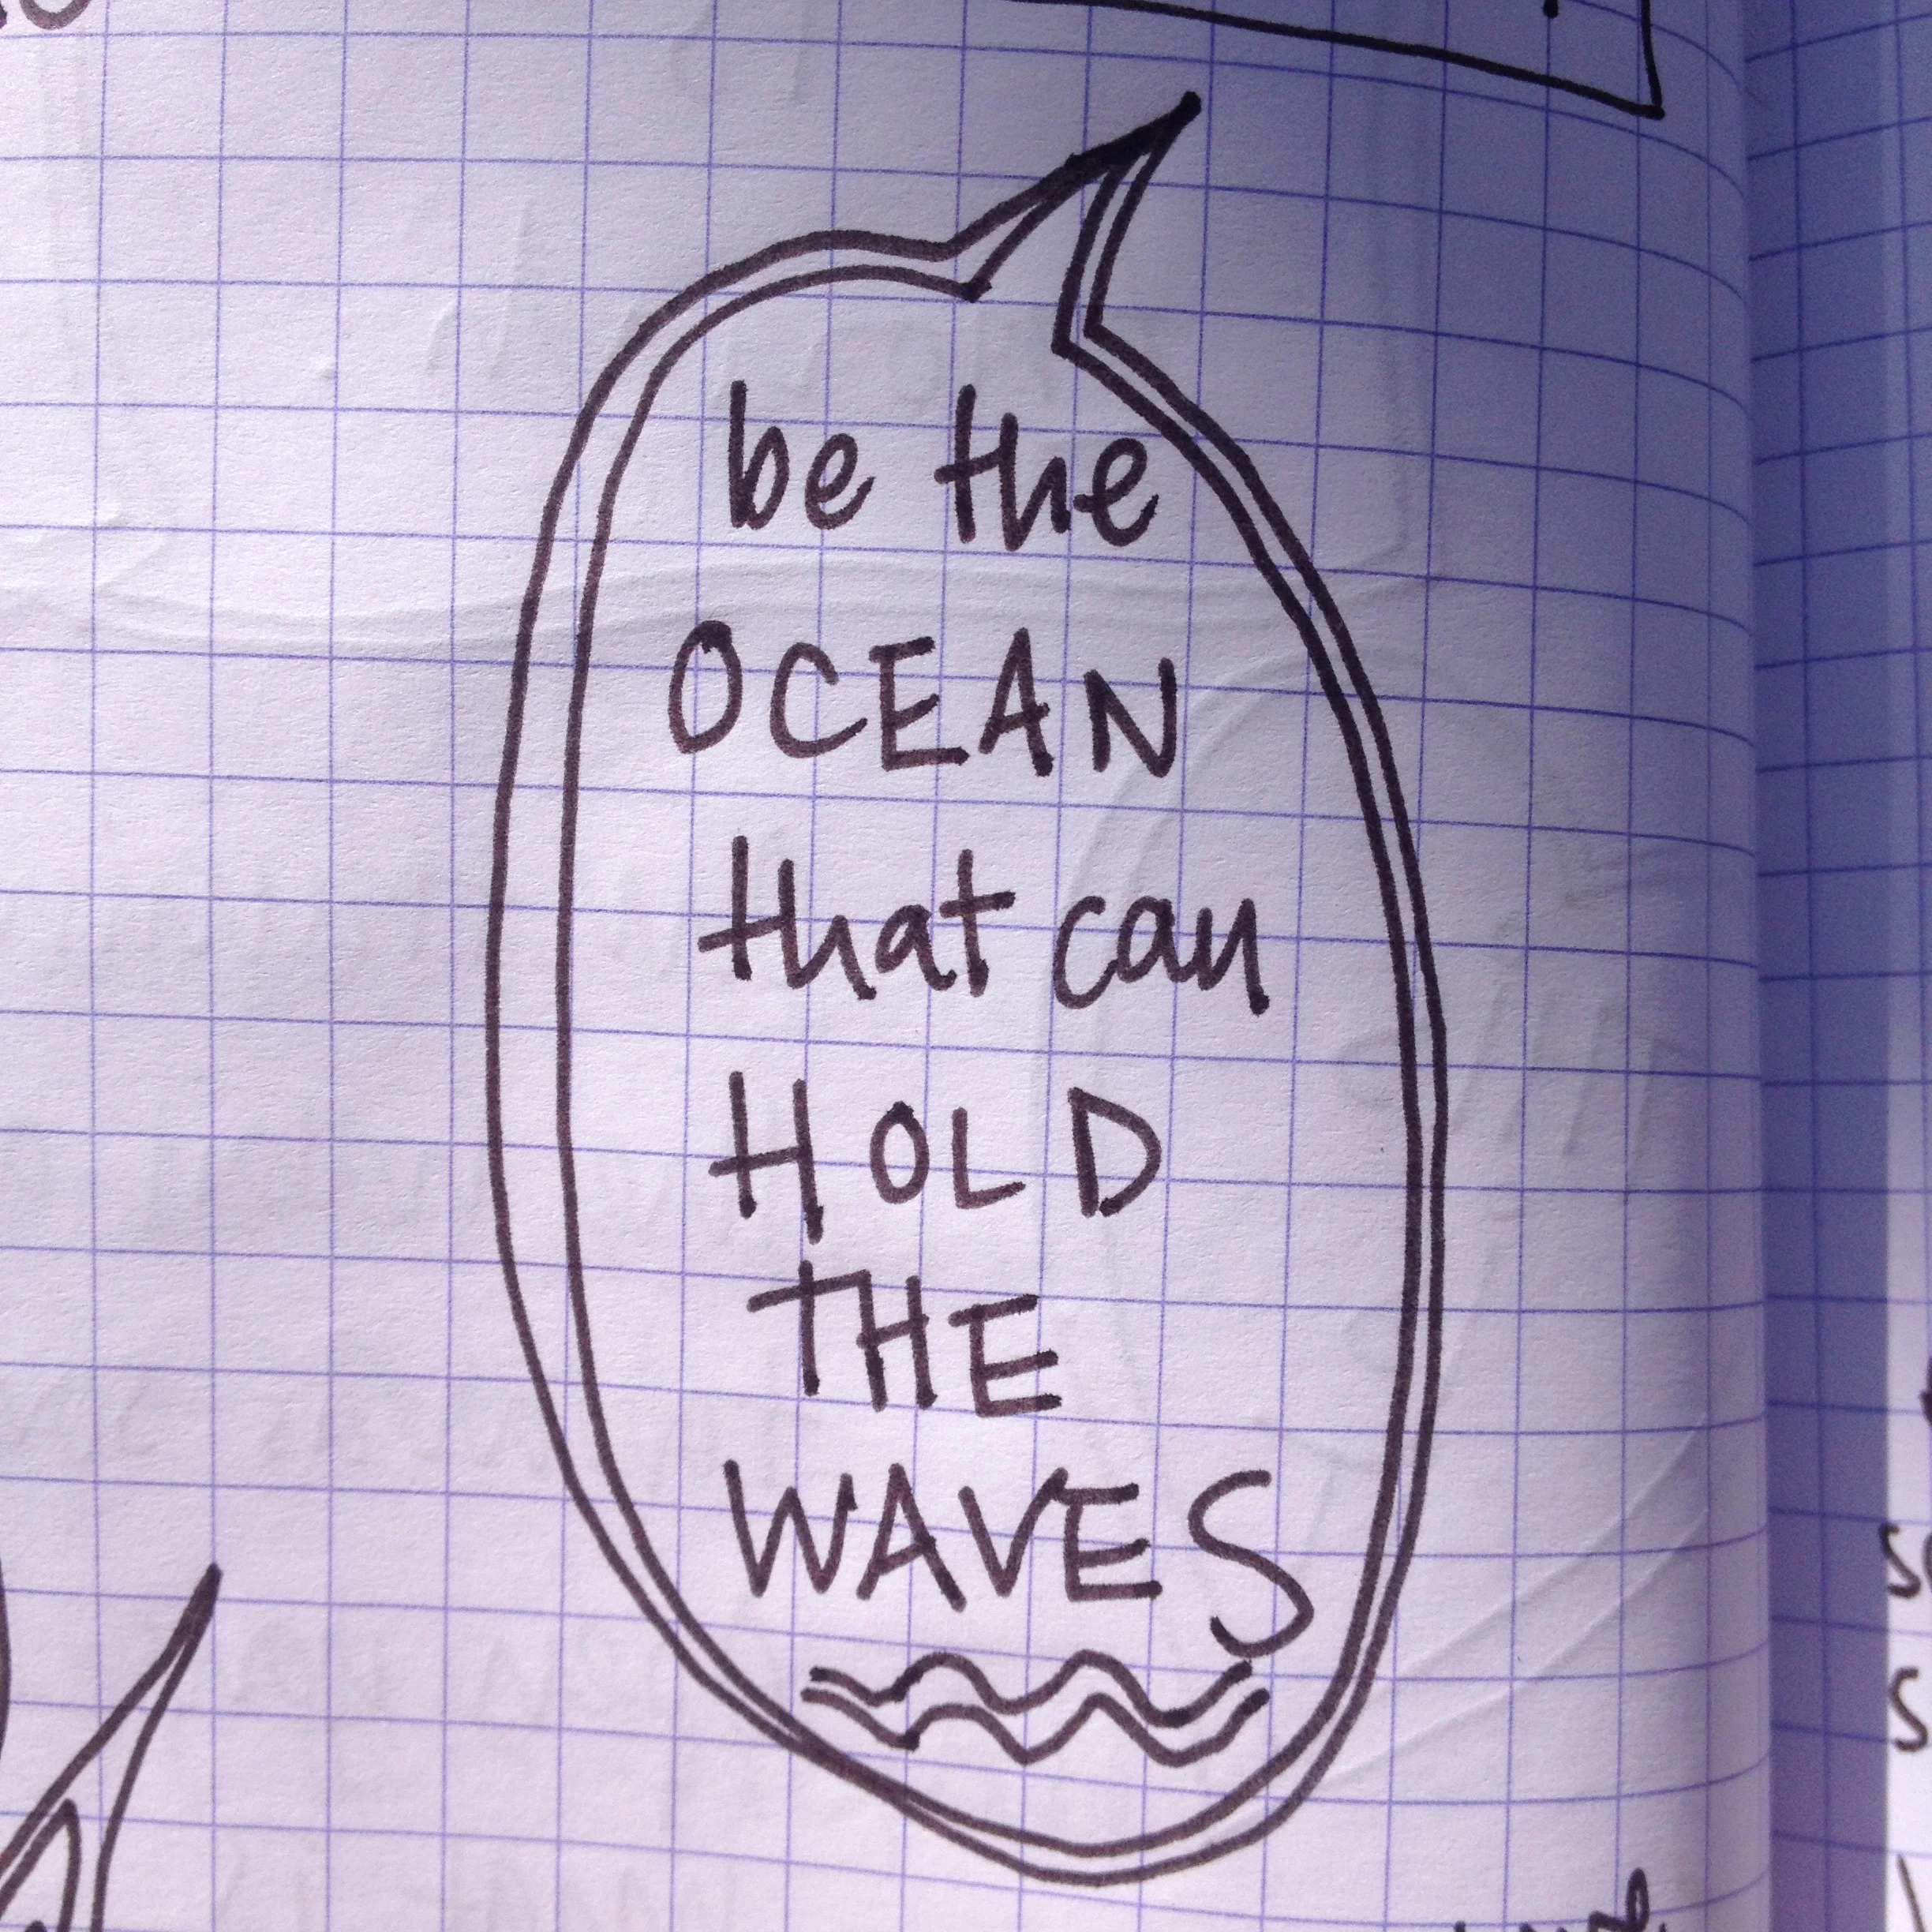 be the
OCEAN
that can
HOLD
THE
WAVES